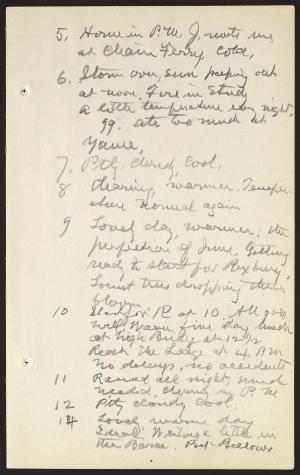 5, Home in P.M. J. meets me
at Chain Ferry, cold,
6, Storm over, sun peeping out
at noon. Fire in Study
a little temperature every night,
99. ate too much at
Yama,
7, Ptly, cloudy, cool.
8 Clearing, warmer, Temper-
ature normal again
9 Lovely day, warmer; the
perfection of June. Getting
ready to start for Roxbury,
Locust trees dropping their
bloom
10 Start for R at 10. All goes
well, warm, fine day, lunch
at High Bridge at 12 1/2
Reach The Lodge at 4 P.M.
No delays, no accidents.
11 Rained all night, much
needed, clearing in P.M.
12 Ptly cloudy cool.
14 Lovely warm day
Ideal. Writing a little in
the Barn.